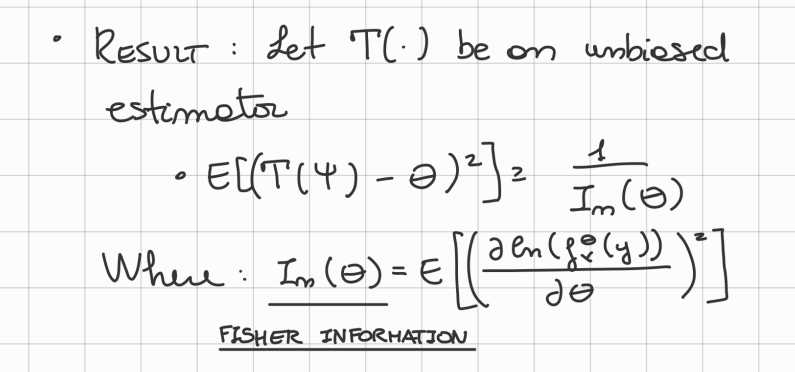 • RESULT : Let T(·) be an unbiased
estimator
• E[(T(Ψ) - θ)²] ≥ 1 / I_m(θ)
Where : I_m(θ) = E[(∂ ln(f_x^θ(y)) / ∂θ)²]
FISHER INFORMATION